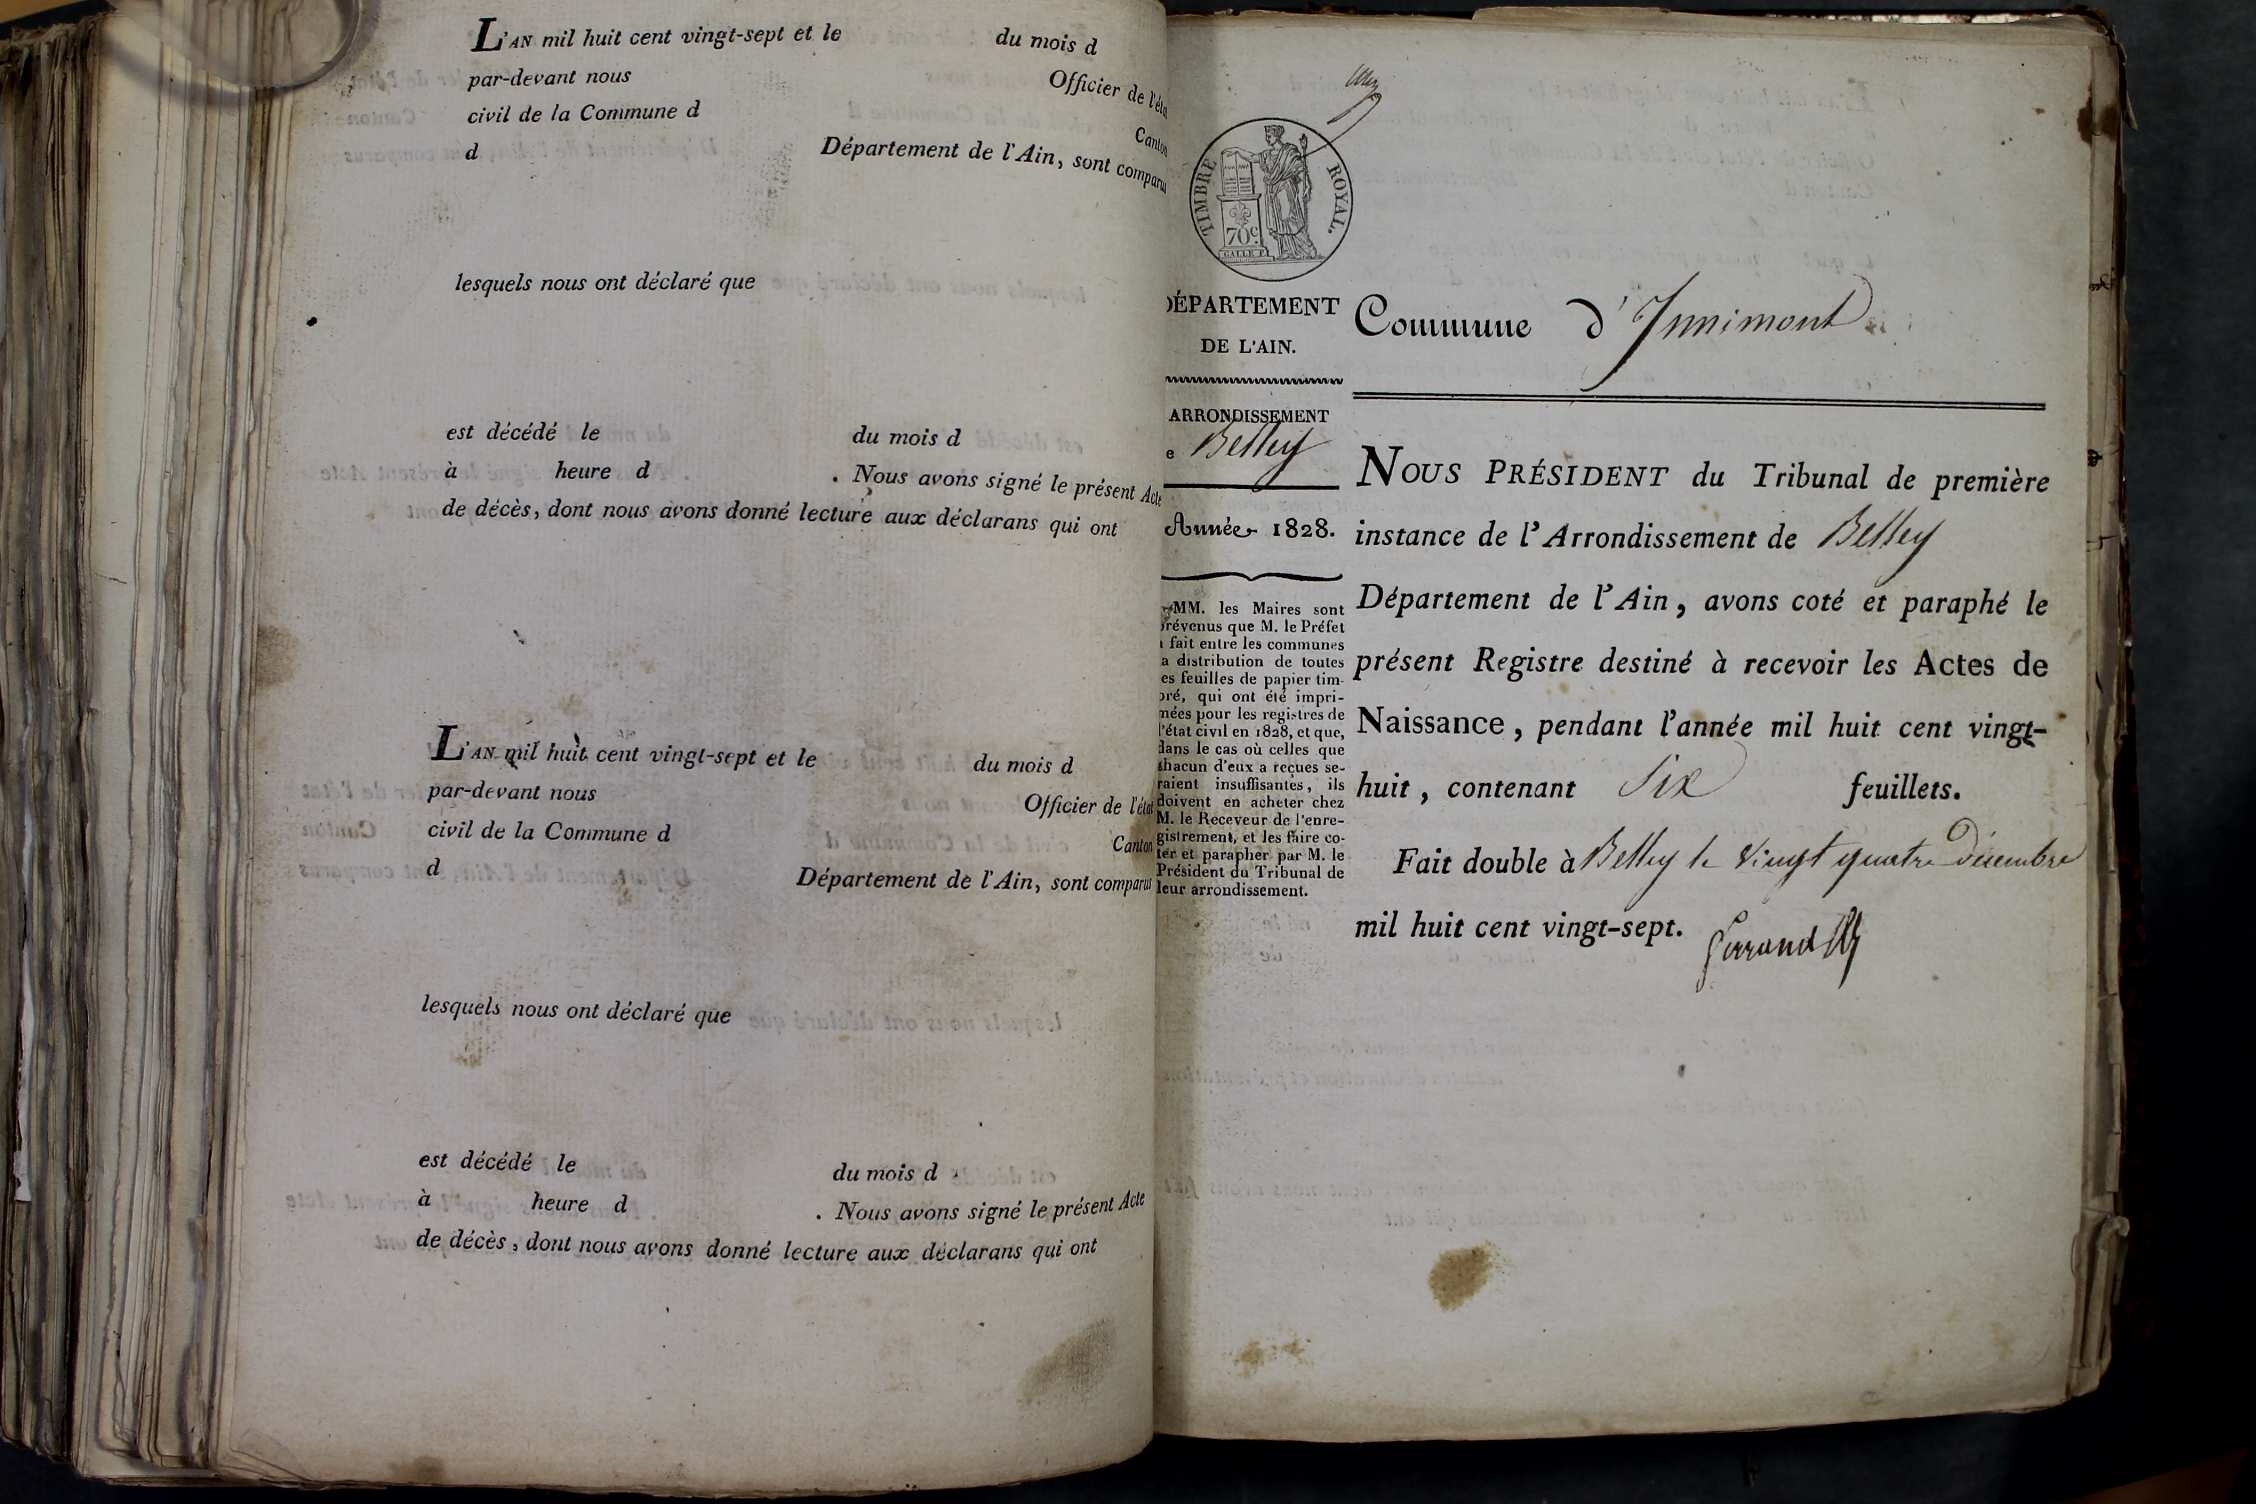 L'AN mil huit cent vingt-sept et le du mois d
par-devant nous Officier de l'état
civil de la Commune d Canton
d Département de l'Ain, sont comparus
lesquels nous ont déclaré que
est décédé le du mois d
à heure d . Nous avons signé le présent Acte
de décès, dont nous avons donné lecture aux déclarans qui ont
L'AN mil huit cent vingt-sept et le du mois d
par-devant nous Officier de l'état
civil de la Commune d Canton
d Département de l'Ain, sont comparus
lesquels nous ont déclaré que
est décédé le du mois d
à heure d . Nous avons signé le présent Acte
de décès, dont nous avons donné lecture aux déclarans qui ont
TIMBRE ROYAL.
70c.
DÉPARTEMENT
DE L'AIN.
ARRONDISSEMENT
e Belley
Année 1828.
MM. les Maires sont
prévenus que M. le Préfet
a fait entre les communes
la distribution de toutes
les feuilles de papier tim-
bré, qui ont été impri-
mées pour les registres de
l'état civil en 1828, et que,
dans le cas où celles que
chacun d'eux a reçues se-
raient insuffisantes, ils
doivent en acheter chez
M. le Receveur de l'enre-
gistrement, et les faire co-
ter et parapher par M. le
Président du Tribunal de
leur arrondissement.
Commune d'Innimont
NOUS PRÉSIDENT du Tribunal de première
instance de l'Arrondissement de Belley
Département de l'Ain, avons coté et paraphé le
présent Registre destiné à recevoir les Actes de
Naissance, pendant l'année mil huit cent vingt-
huit, contenant Six feuillets.
Fait double à Belley le vingt quatre Décembre
mil huit cent vingt-sept.